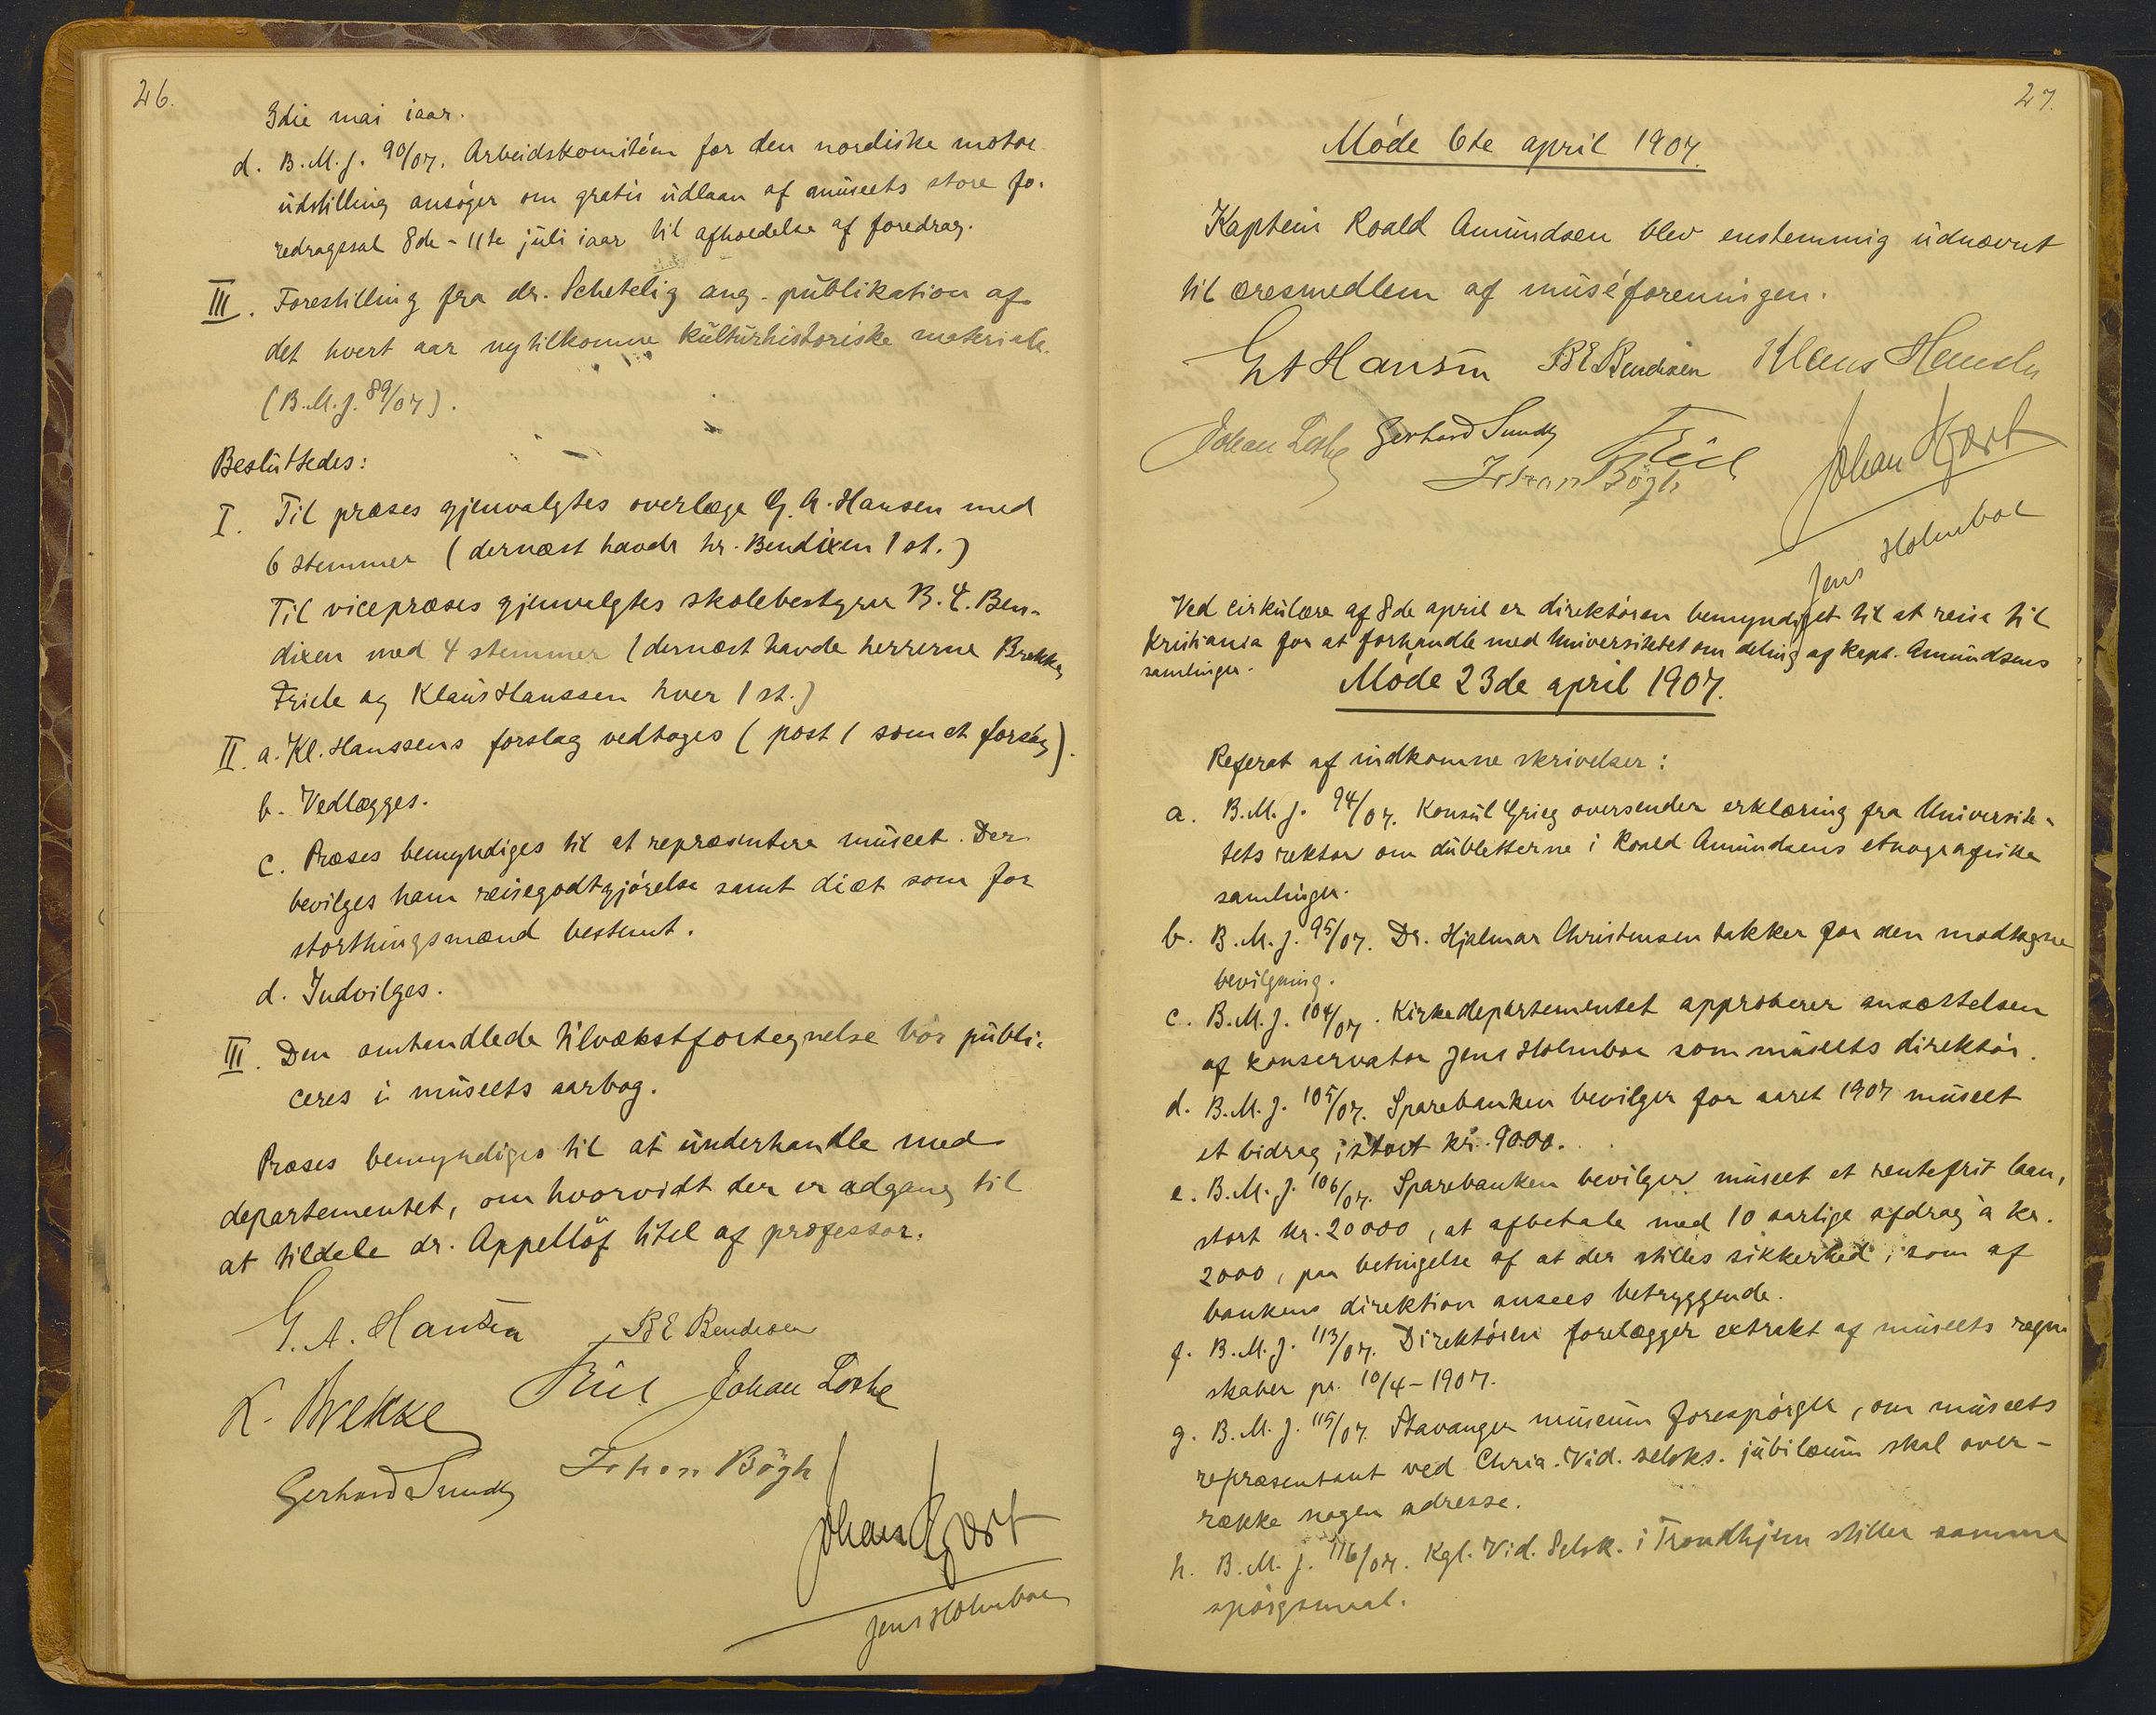 26.
3die mai iaar.
d. B.M.J. 90/07. Arbeidskomitéen for den nordiske motor
udstilling ansøger om gratis udlaan af museets store fo-
redragssal 8de - 11te juli iaar til afholdelse af foredrag.
III. Forestilling fra dr. Schetelig ang. publikation af
det hvert aar nytilkomne kulturhistoriske materiale.
(B.M.J. 89/07).
Besluttedes:
I. Til præses gjenvalgtes overlæge G. A. Hansen med
6 stemmer (dernæst havde hr. Bendixen 1 st.)
Til vicepræses gjenvalgtes skolebestyrer B. E. Ben-
dixen med 4 stemmer (dernæst havde herrerne Brekke,
Friele og Klaus Hanssen hver 1 st.)
II. a. Kl. Hanssens forslag vedtoges (post 1 som et forsøg).
b. Vedlægges.
c. Præses bemyndiges til at repræsentere museet. Der
bevilges ham reisegodtgjørelse samt diæt som for
storthingsmænd bestemt.
d. Indvilges.
III. Den omhandlede tilvækstfortegnelse bør publi-
ceres i museets aarbog.
Præses bemyndiges til at underhandle med
departementet, om hvorvidt der er adgang til
at tildele dr. Appellöf titel af professor.
G. A. Hansen B E Bendixen
K. Brekke Friele Johan Lothe
Gerhard Sundt Johan Bøgh
Johan Hjort
Jens Holmboe
27.
Møde 6te april 1907.
Kaptein Roald Amundsen blev enstemmig udnævnt
til æresmedlem af muséforeningen.
G A Hansen B E Bendixen Klaus Hanssen
Johan Lothe Gerhard Sundt Friele Johan Hjort
Johan Bøgh
Jens Holmboe
Ved cirkulære af 8de april er direktøren bemyndiget til at reise til
Kristiania for at forhandle med Universitetet om deling af kapt. Amundsens
samlinger.
Møde 23de april 1907.
Referat af indkomne skrivelser:
a. B.M.J. 94/07. Konsul Grieg oversender erklæring fra Universite-
tets rektor om dubletterne i Roald Amundsens etnografiske
samlinger.
b. B.M.J. 95/07. Dr. Hjalmar Christensen takker for den modtagne
bevilgning.
c. B.M.J. 104/07. Kirkedepartementet approberer ansættelsen
af konservator Jens Holmboe som museets direktør.
d. B.M.J. 105/07. Sparebanken bevilger for aaret 1907 museet
et bidrag, stort kr. 9000.
e. B.M.J. 106/07. Sparebanken bevilger museet et rentefrit laan,
stort kr. 20000, at afbetale med 10 aarlige afdrag à kr.
2000, paa betingelse af at der stilles sikkerhed, som af
bankens direktion ansees betryggende.
f. B.M.J. 113/07. Direktøren forelægger extrakt af museets regn-
skaber pr. 10/4-1907.
g. B.M.J. 115/07. Stavanger museum forespørger, om museets
repræsentant ved Chria. Vid. selsks. jubilæum skal over-
række nogen adresse.
h. B.M.J. 116/07. Kgl. Vid. Selsk. i Trondhjem stiller samme
spørgsmaal.